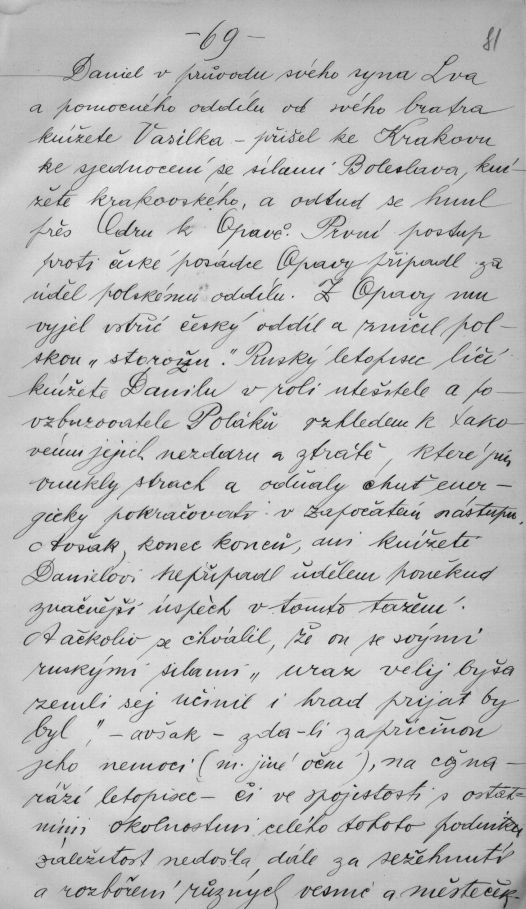 -69-
81
Daniel v průvodu svého syna Lva
a pomocného oddílu od svého bratra
knížete Vasilka – přišel ke Krakovu
ke sjednocení se silami Boleslava, kní-
žete krakovského, a odtud se hnul
přes Odru k Opavě. První postup
proti české posádce Opavy připadl za
úděl polskému oddílu. Z Opavy mu
vyjel vstříc český oddíl a zničil pol-
skou „storožu." Ruský letopisec líčí
knížete Danila v roli utešitele a po-
vzbuzovatele Poláků vzhledem k tako-
vému jejich nezdaru a ztrátě, které jim
vnukly strach a odňaly chuť ener-
gicky pokračovati v započatém nástupu.
Avšak, konec konců, ani knížeti
Danielovi nepřipadl údělem poněkud
značnější úspěch v tomto tažení.
A ačkoliv se chválil, že on se svými
ruskými silami „uraz velij byša
zemli sej učinil i hrad prijat by
byl", – avšak – zda-li zapříčinou
jeho nemoci (m. jiné oční), na což na-
ráží letopisec – či ve spojistosti s ostat-
ními okolnostmi celého tohoto podniku
záležitost nedošla dále za sežehnutí
a rozboření různých vesnic a městeček.